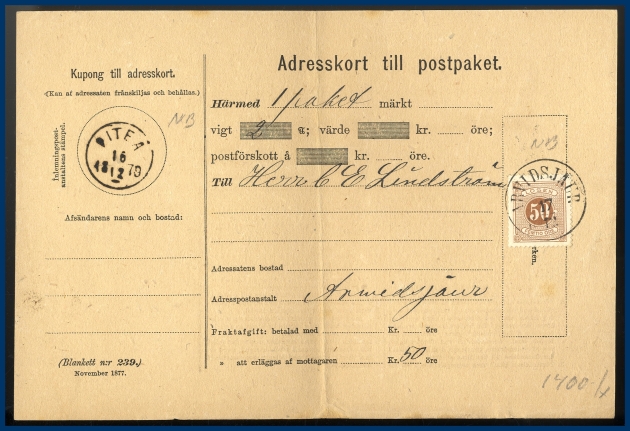 Kupong till adresskort.
(Kan af adressaten frånskiljas och behållas.)
Inlemningspost-
anstaltens stämpel.
PITEÅ
16
12
1879
NB
Afsändarens namn och bostad:
(Blankett n:r 239.)
November 1877.
Adresskort till postpaket.
Härmed 1 paket märkt
vigt 2 ℔; värde kr. öre;
postförskott å kr. öre.
Till Herr C E Lundström
Adressatens bostad
Adresspostanstalt Arvidsjaur
Fraktafgift: betalad med Kr. öre
» att erläggas af mottagaren Kr. 50 öre
NB
ARVIDSJAUR
LÖSEN
50
rken.
1400/x